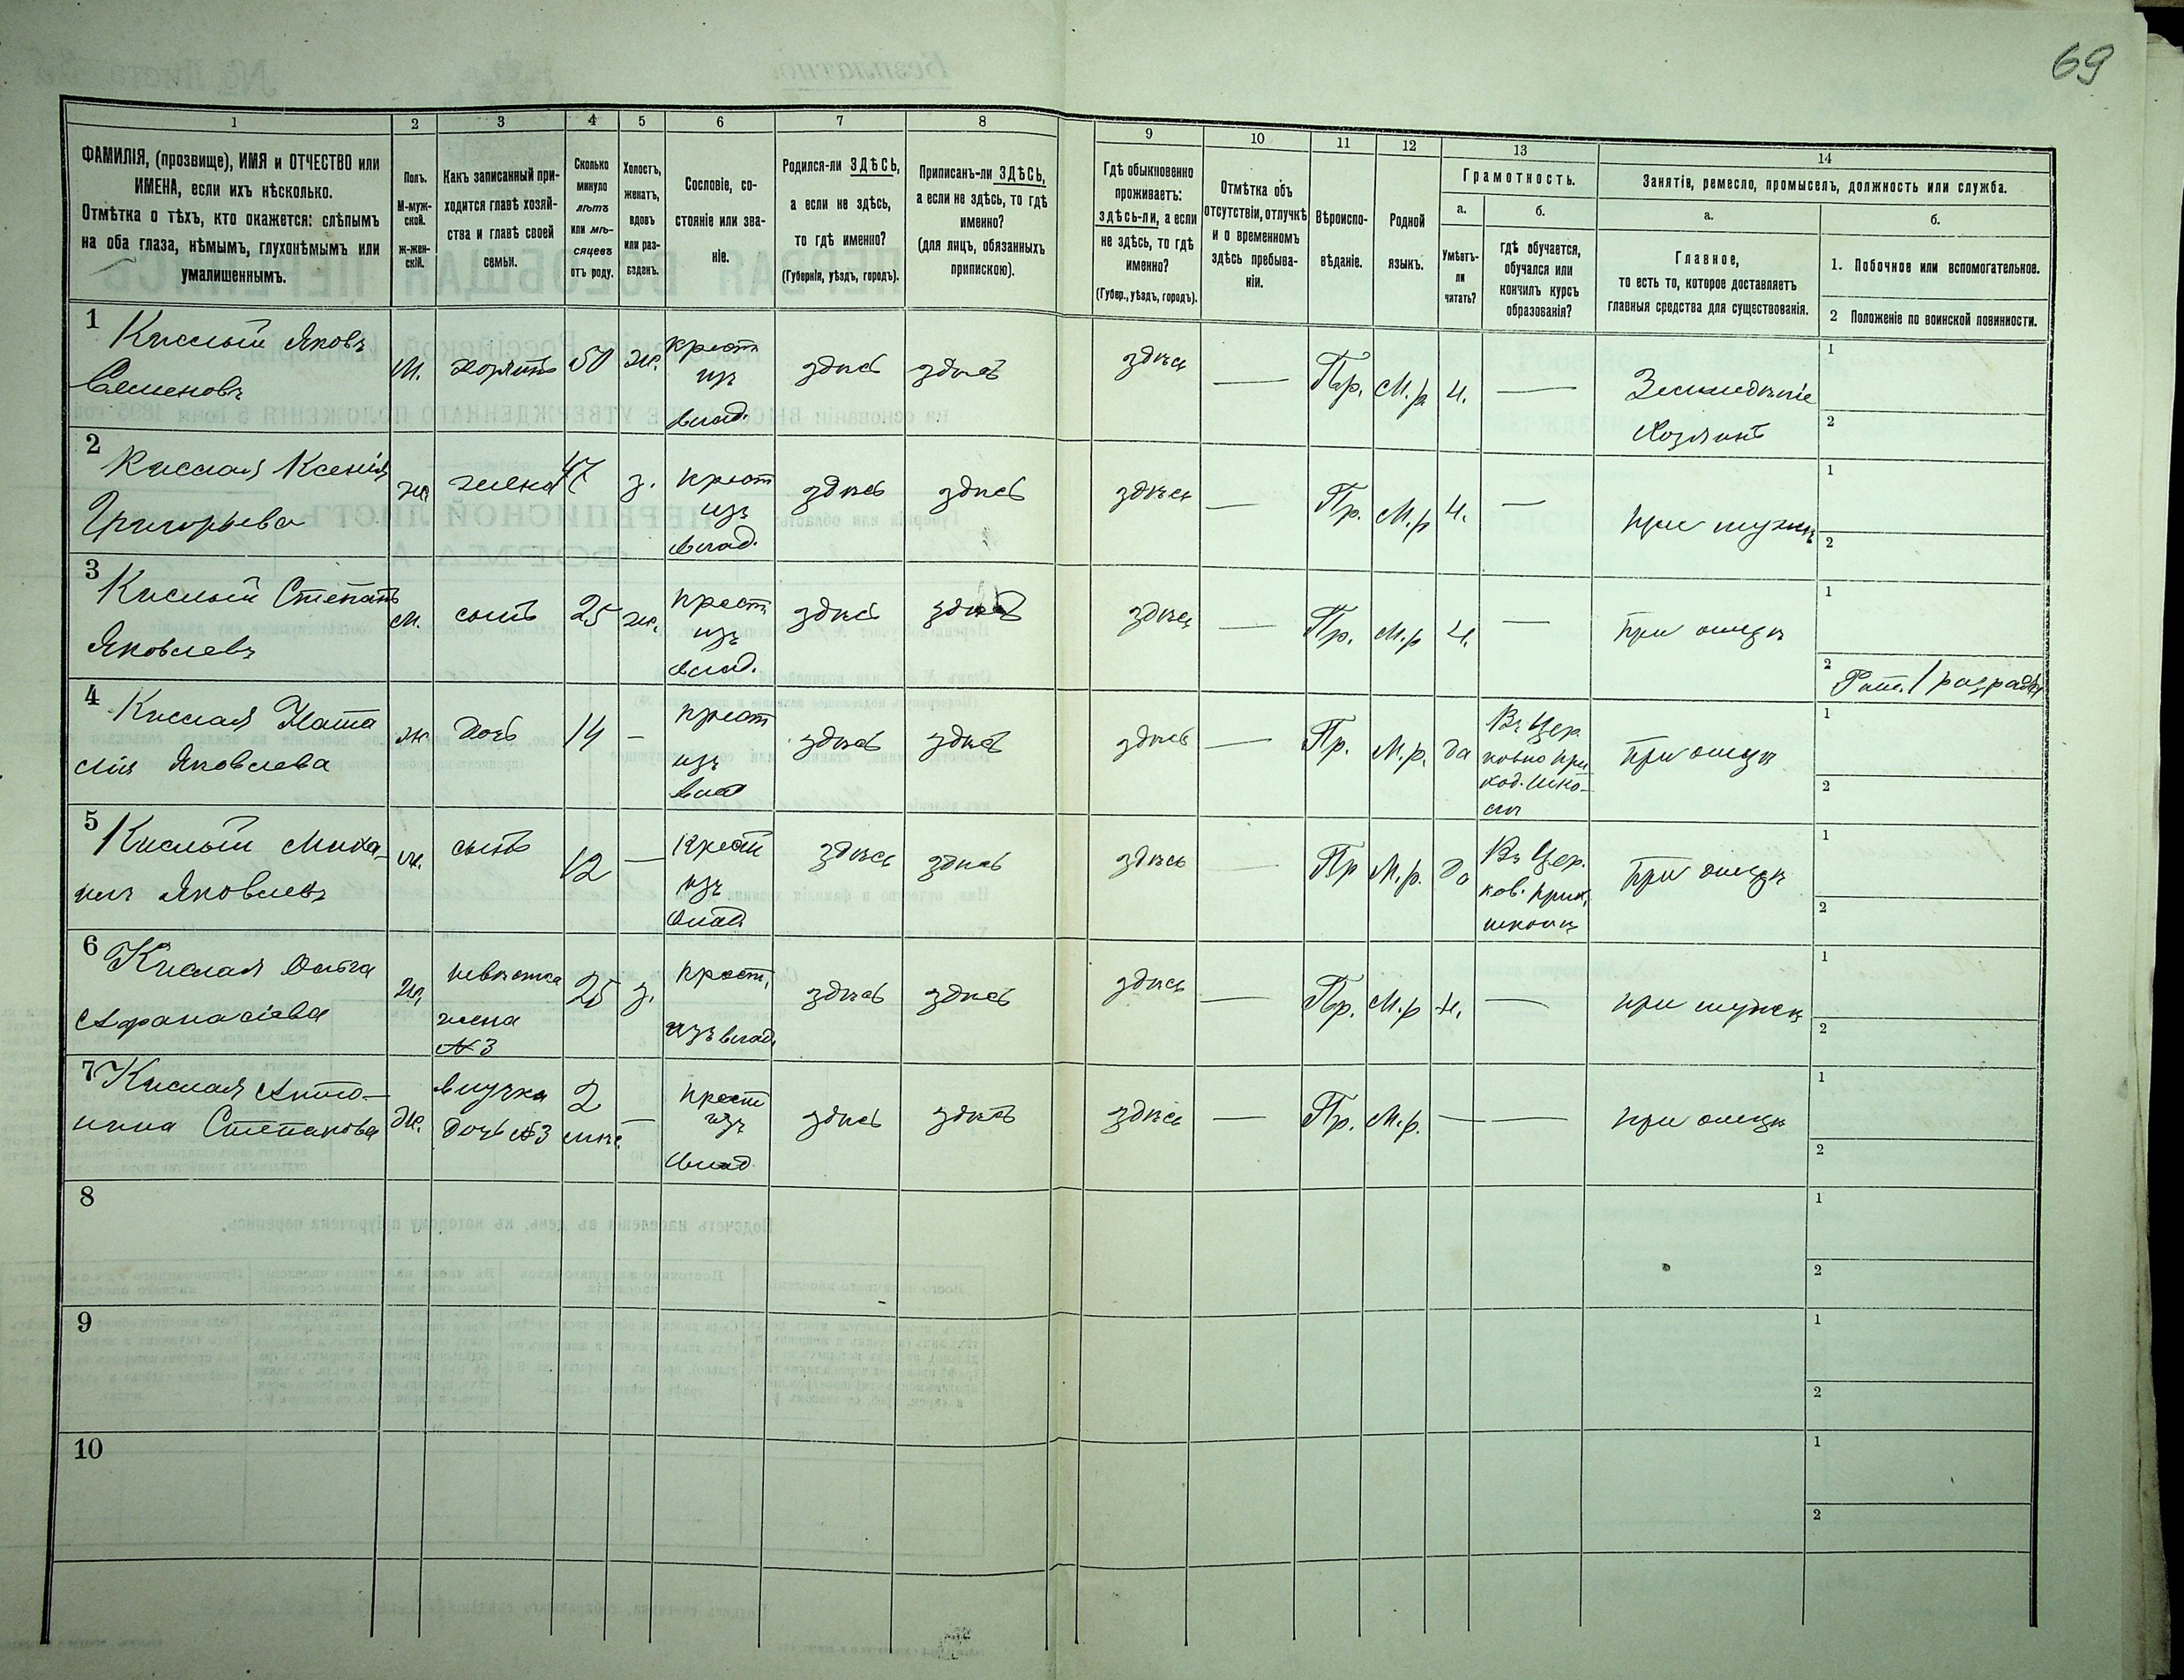 69
1 2 3 4 5 6 7 8 9 10 11 12 13 14
ФАМИЛІЯ, (прозвище), ИМЯ и ОТЧЕСТВО или
ИМЕНА, если ихъ нѣсколько.
Отмѣтка о тѣхъ, кто окажется: слѣпымъ
на оба глаза, нѣмымъ, глухонѣмымъ или
умалишеннымъ.
Полъ.
М-муж-
ской.
ж-жен-
скій.
Какъ записанный при-
ходится главѣ хозяй-
ства и главѣ своей
семьи.
Сколько
минуло
лѣтъ
или мѣ-
сяцевъ
отъ роду.
Холостъ,
женатъ,
вдовъ
или раз-
веденъ.
Сословіе, со-
стояніе или зва-
ніе.
Родился-ли ЗДѢСЬ,
а если не здѣсь,
то гдѣ именно?
(Губернія, уѣздъ, городъ).
Приписанъ-ли ЗДѢСЬ,
а если не здѣсь, то гдѣ
именно?
(для лицъ, обязанныхъ
припискою).
Гдѣ обыкновенно
проживаетъ:
здѣсь-ли, а если
не здѣсь, то гдѣ
именно?
(Губер., уѣздъ, городъ).
Отмѣтка объ
отсутствіи, отлучкѣ
и о временномъ
здѣсь пребыва-
ніи.
Вѣроиспо-
вѣданіе.
Родной
языкъ.
Грамотность.
а.
Умѣетъ-
ли
читать?
б.
гдѣ обучается,
обучался или
кончилъ курсъ
образованія?
Занятіе, ремесло, промыселъ, должность или служба.
а.
Главное,
то есть то, которое доставляетъ
главныя средства для существованія.
б.
1. Побочное или вспомогательное.
2 Положеніе по воинской повинности.
1
Кислый Яковъ
Семеновъ
м.
хозяинъ
50
ж.
крест
изъ
влад.
здѣсь
здѣсь
здѣсь
—
Пр.
М.р
н.
—
Земледѣліе
Хозяинъ
1
2
2
Кислая Ксенія
Григорьева
ж
жена
47
з.
крест
изъ
влад.
здѣсь
здѣсь
здѣсь
—
Пр.
М.р
н.
—
при мужѣ
1
2
3
Кислый Степанъ
Яковлевъ
м.
сынъ
25
ж.
крест
изъ
влад.
здѣсь
здѣсь
здѣсь
—
Пр.
М.р
н.
—
при отцѣ
1
2
Рат. 1 разряда
4
Кислая Ната
лія Яковлева
ж
дочь
14
—
крест
изъ
влад
здѣсь
здѣсь
здѣсь
—
Пр.
М.р.
да
Въ Цер
ковно при
ход. шко-
лѣ
при отцѣ
1
2
5
Кислый Миха-
илъ Яковлевъ
м.
сынъ
12
—
крест
изъ
влад
здѣсь
здѣсь
здѣсь
—
Пр
М.р.
да
Въ Цер.
ков. прих.
школѣ
при отцѣ
1
2
6
Кислая Ольга
Афанасіева
ж.
невѣстка
жена
№3
25
з.
крест.
изъ влад.
здѣсь
здѣсь
здѣсь
—
Пр.
М.р
н.
—
при мужѣ
1
2
7
Кислая Анто-
нина Степанова
ж.
внучка
дочь №3
2
лѣтъ
—
крест
изъ
влад
здѣсь
здѣсь
здѣсь
—
Пр.
М.р.
—
—
при отцѣ
1
2
8
1
2
9
1
2
10
1
2